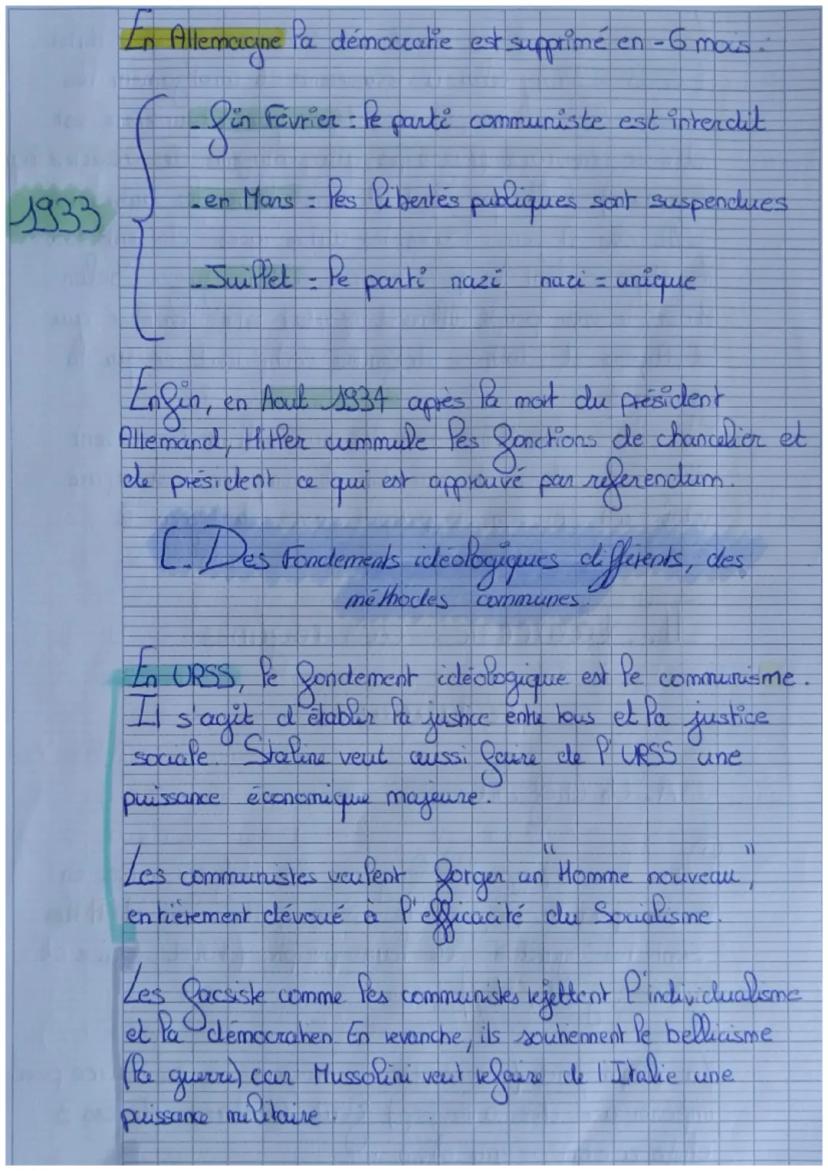 En Allemagne la démocratie est supprimé en -6 mois :
- fin Février : le parti communiste est interdit
1933
- en Mars : les libertés publiques sont suspendues
- Juillet = le parti nazi nazi = unique
Enfin, en Aout 1934 après la mort du président
Allemand, Hitler cummule les fonctions de chancelier et
de président ce qui est approuvé par referendum.
C. Des Fondements idéologiques differents, des
méthodes communes.
En URSS, le fondement idéologique est le communisme.
Il s'agit d'établir la justice entre tous et la justice
sociale. Staline veut aussi faire de l'URSS une
puissance économique majeure.
Les communistes veulent forger un "Homme nouveau",
entièrement dévoué à l'efficacité du Socialisme.
Les facsiste comme les communistes rejettent l'individualisme
et la démocratien En revanche, ils soutiennent le bellicisme
(la guerre) car Mussolini veut refaire de l'Italie une
puissance militaire.